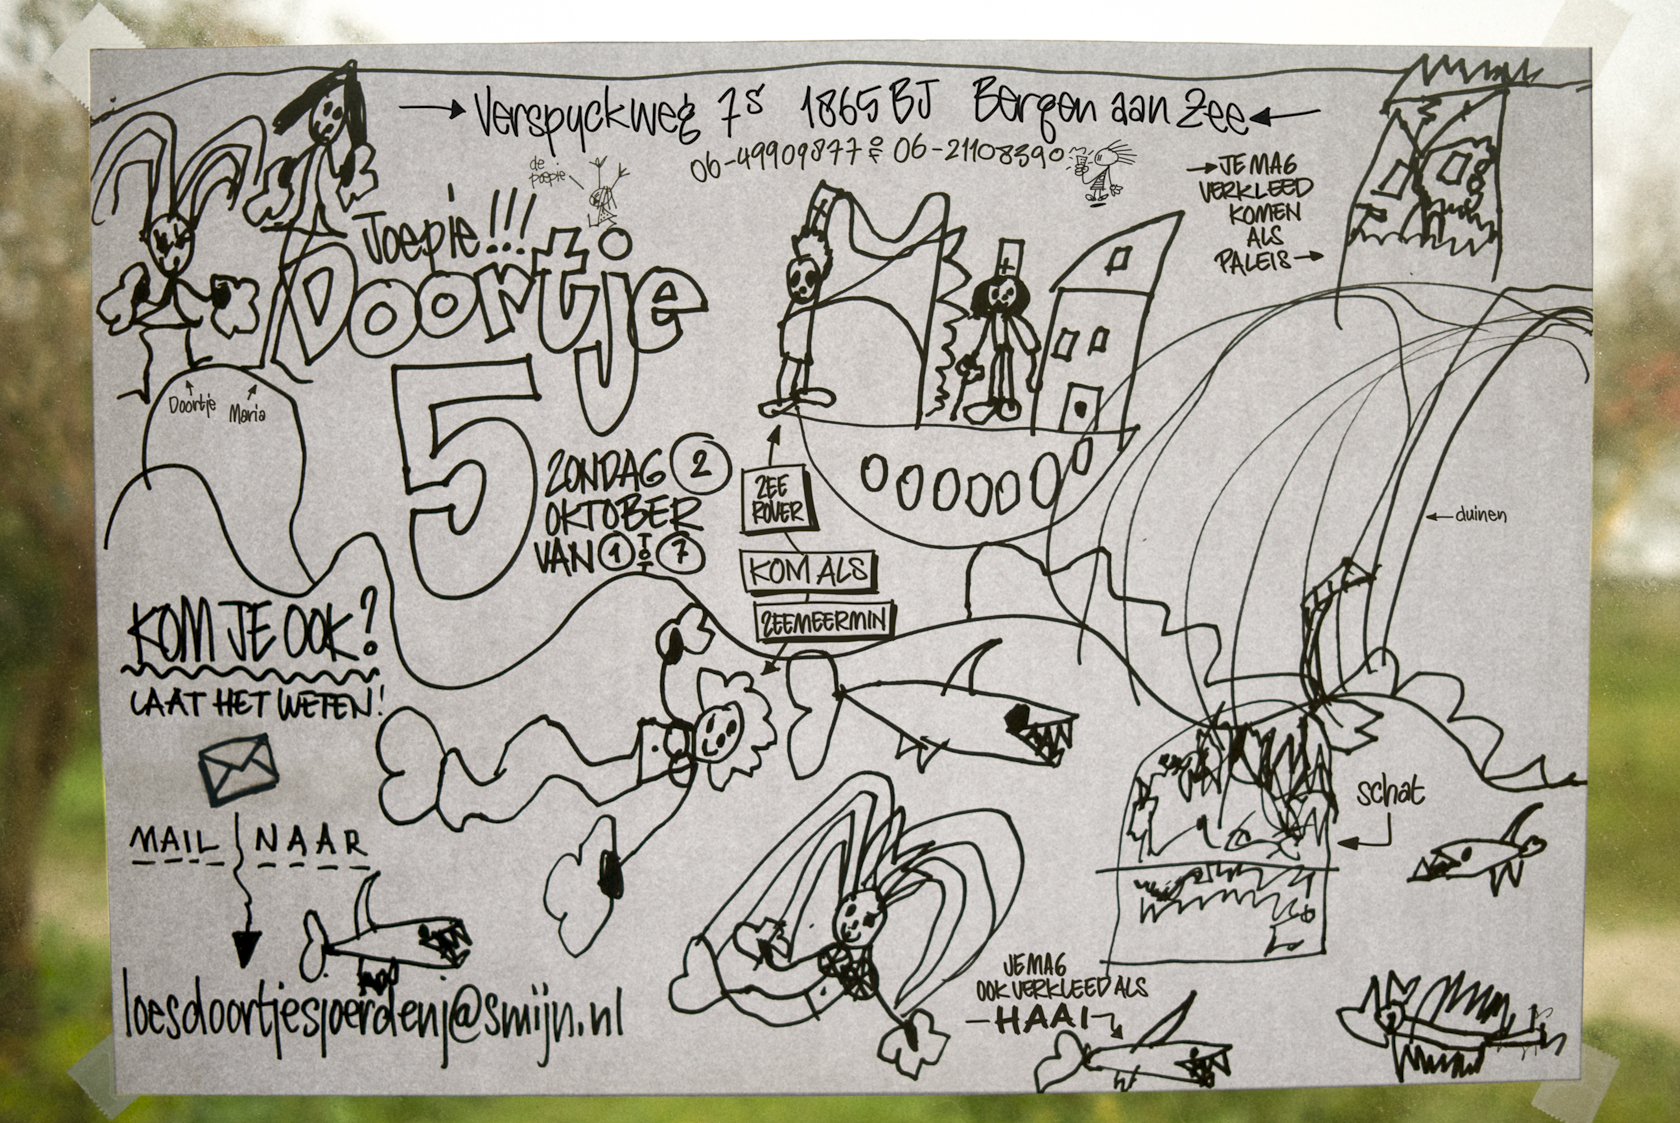 Verspyckweg 7s 1865 BJ Bergen aan Zee
06-49909877 OF 06-21108390
de
poepie
JE MAG
VERKLEED
KOMEN
ALS
PALEIS
Joepie!!!
Doortje
5
Doortje
Maria
ZONDAG 2
OKTOBER
VAN 1 TOT 7
ZEE
ROVER
KOM ALS
ZEEMEERMIN
duinen
KOM JE OOK?
LAAT HET WETEN!
MAIL NAAR
loesdoortjesjoerdenj@smijn.nl
schat
JE MAG
OOK VERKLEED ALS
HAAI